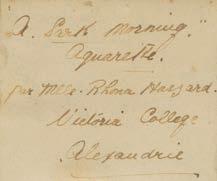 A. Sark Morning."
Aquarelle.
par Mlle. Rhona Haszard.
Victoria College
Alexandrie